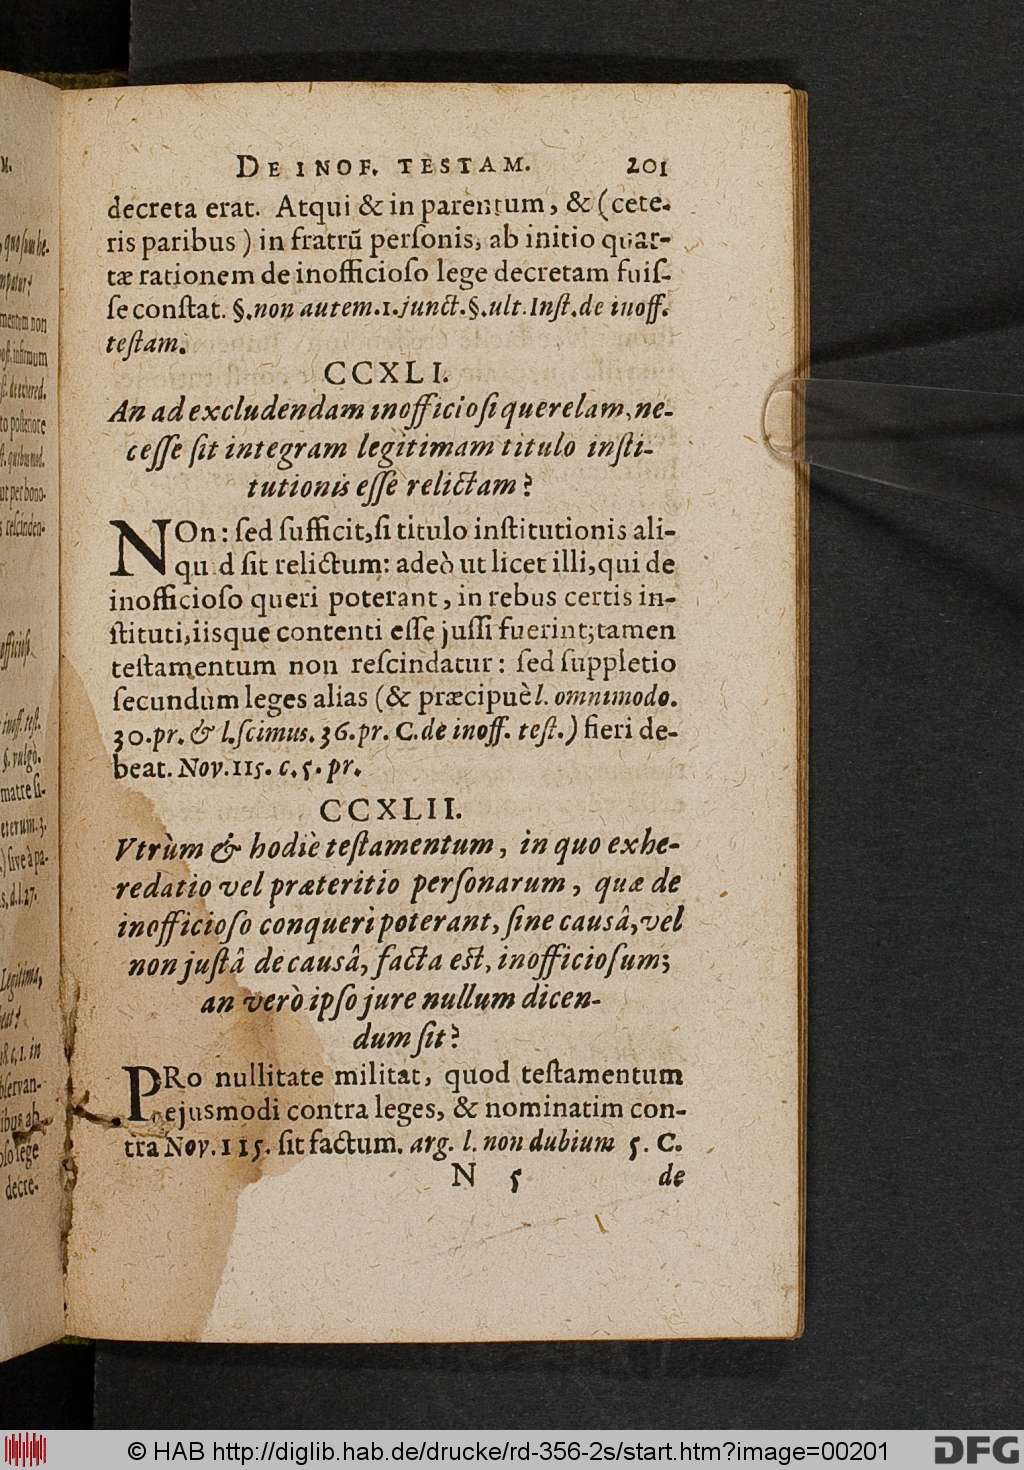 DE INOF. TESTAM. 201
decreta erat. Atqui & in parentum, & (cete-
ris paribus) in fratrũ perſonis, ab initio quar-
tæ rationem de inofficioſo lege decretam fuiſ-
ſe conſtat. §. non autem. 1. junct. §. ult. Inſt. de inoff.
teſtam.
CCXLI.
An ad excludendam inofficioſi querelam, ne-
ceſſe ſit integram legitimam titulo inſti-
tutionis eſſe relictam?
NOn: ſed ſufficit, ſi titulo inſtitutionis ali-
quid ſit relictum: adeò ut licet illi, qui de
inofficioſo queri poterant, in rebus certis in-
ſtituti, iisque contenti eſſe juſſi fuerint; tamen
teſtamentum non reſcindatur: ſed ſuppletio
ſecundum leges alias (& præcipuè l. omnimodo.
30. pr. & l. ſcimus. 36. pr. C. de inoff. teſt.) fieri de-
beat. Nov. 115. c. 5. pr.
CCXLII.
Vtrùm & hodiè teſtamentum, in quo exhe-
redatio vel præteritio perſonarum, quæ de
inofficioſo conqueri poterant, ſine causâ, vel
non juſtâ de causâ, facta eſt, inofficioſum;
an verò ipſo jure nullum dicen-
dum ſit?
PRo nullitate militat, quod teſtamentum
ejusmodi contra leges, & nominatim con-
tra Nov. 115. ſit factum. arg. l. non dubium 5. C.
N 5 de
© HAB http://diglib.hab.de/drucke/rd-356-2s/start.htm?image=00201
DFG